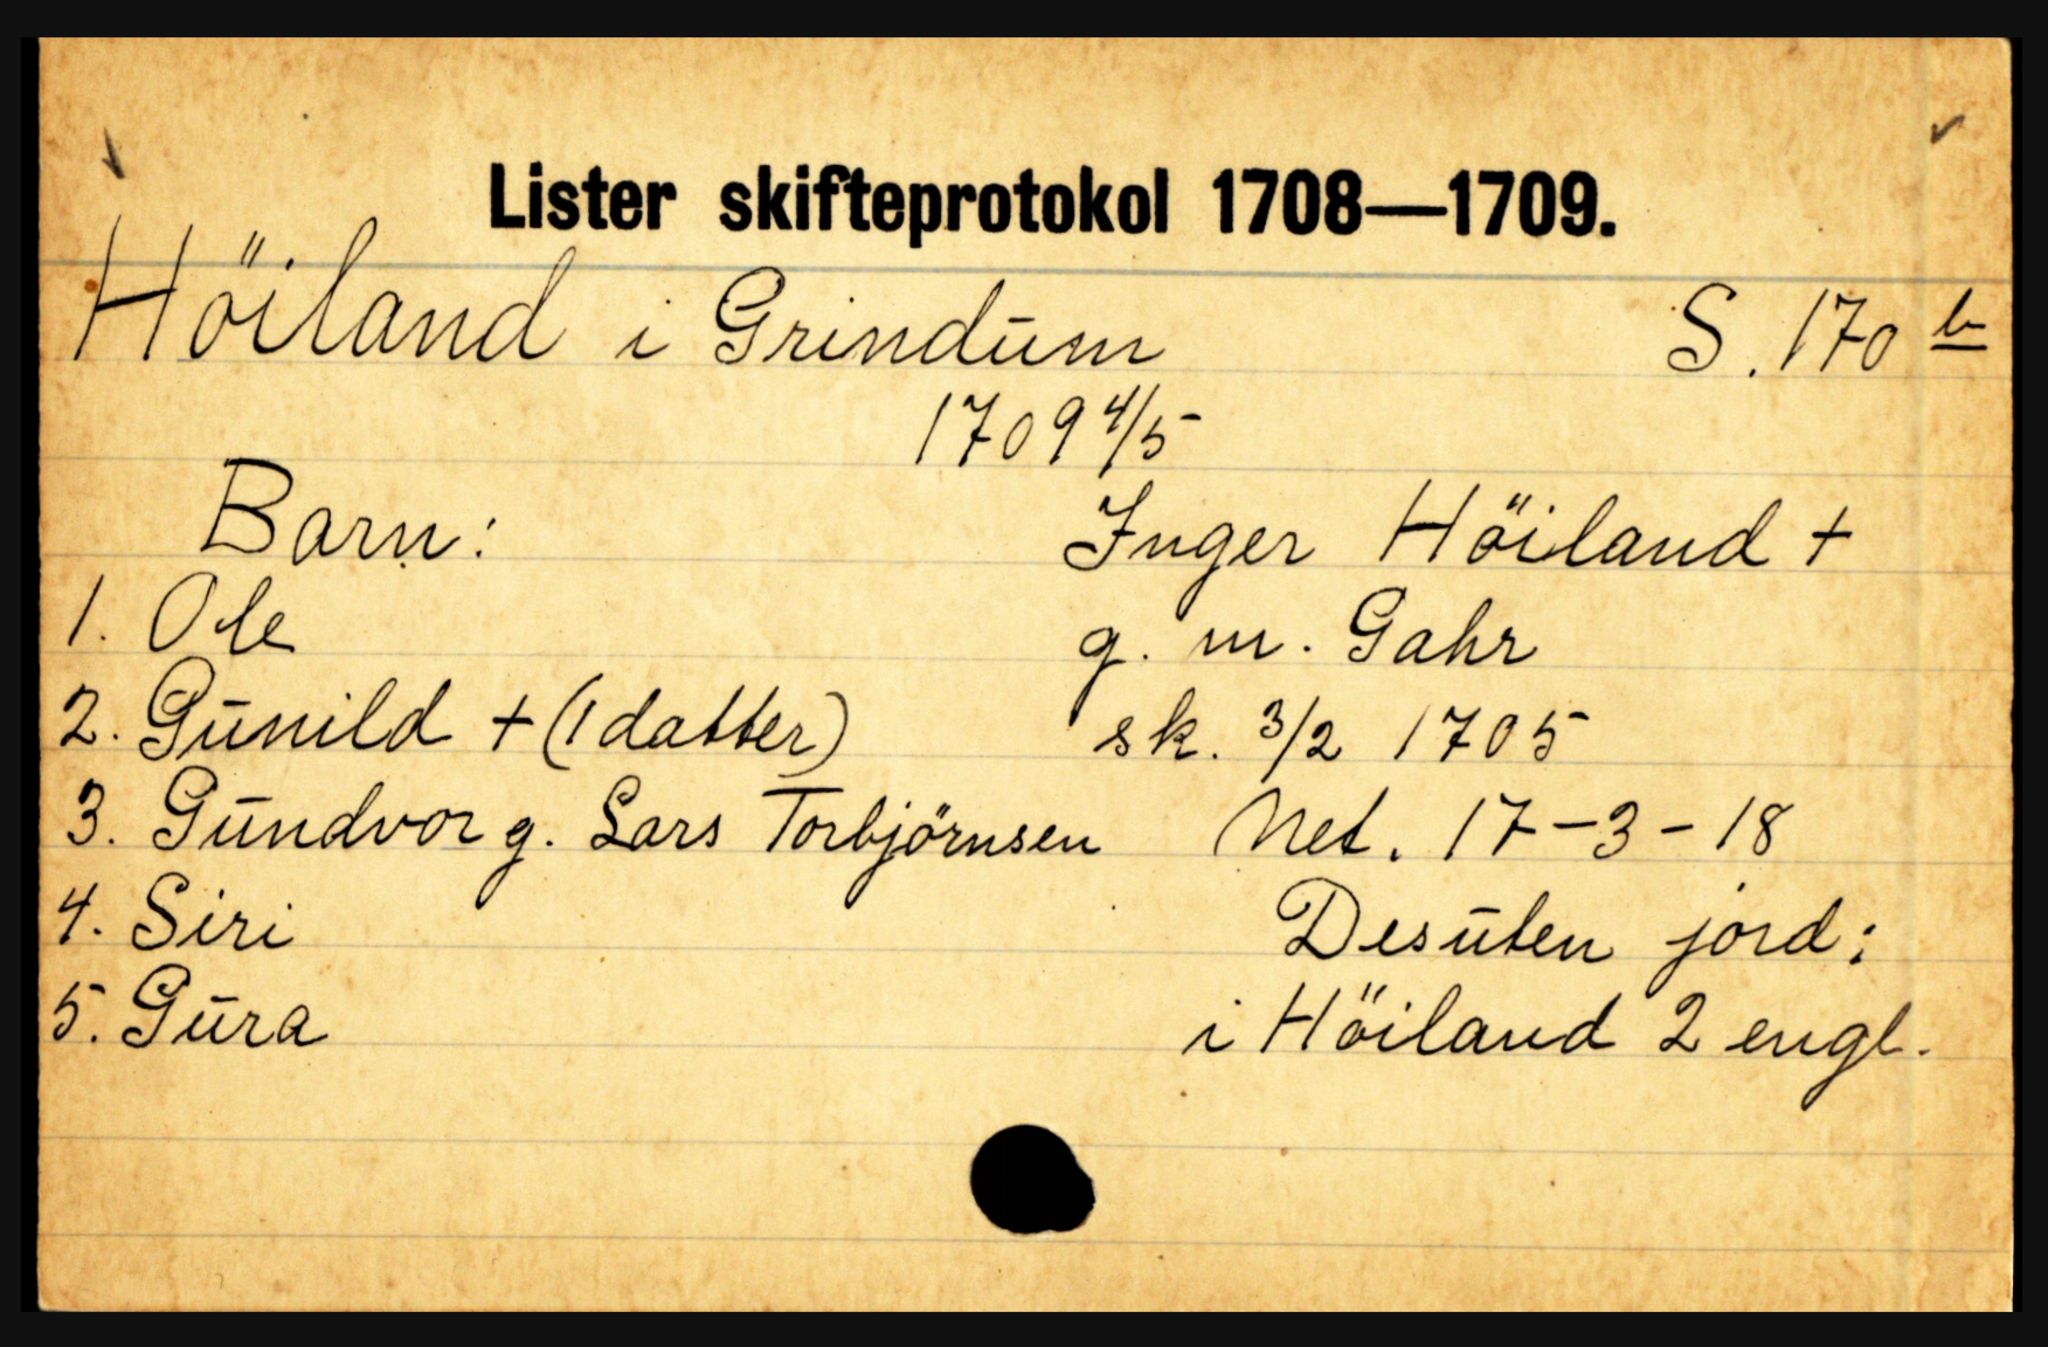 Lister skifteprotokol 1708—1709.
Höiland i Grindum S. 170 b
1709 4/5
Barn: Inger Höiland +
1. Ole g. m. Gahr
2. Gunild + (1 datter) sk. 3/2 1705
3. Gundvor g. Lars Torbjörnsen Net. 17-3-18
4. Siri Desuten jord:
5. Gura i Höiland 2 engl.